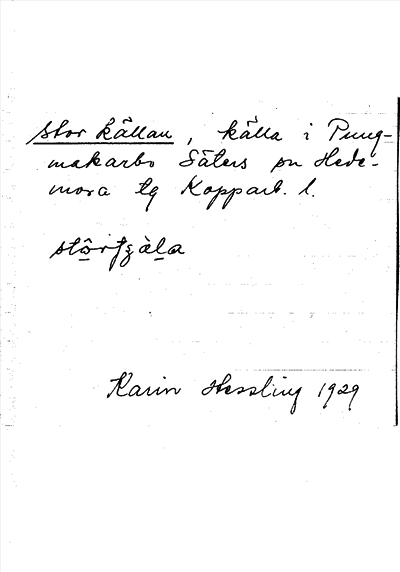 Stor källan, källa i Pung-
makarbo Säters sn Hede-
mora tg Kopparb. l.
Karin Hessling 1929